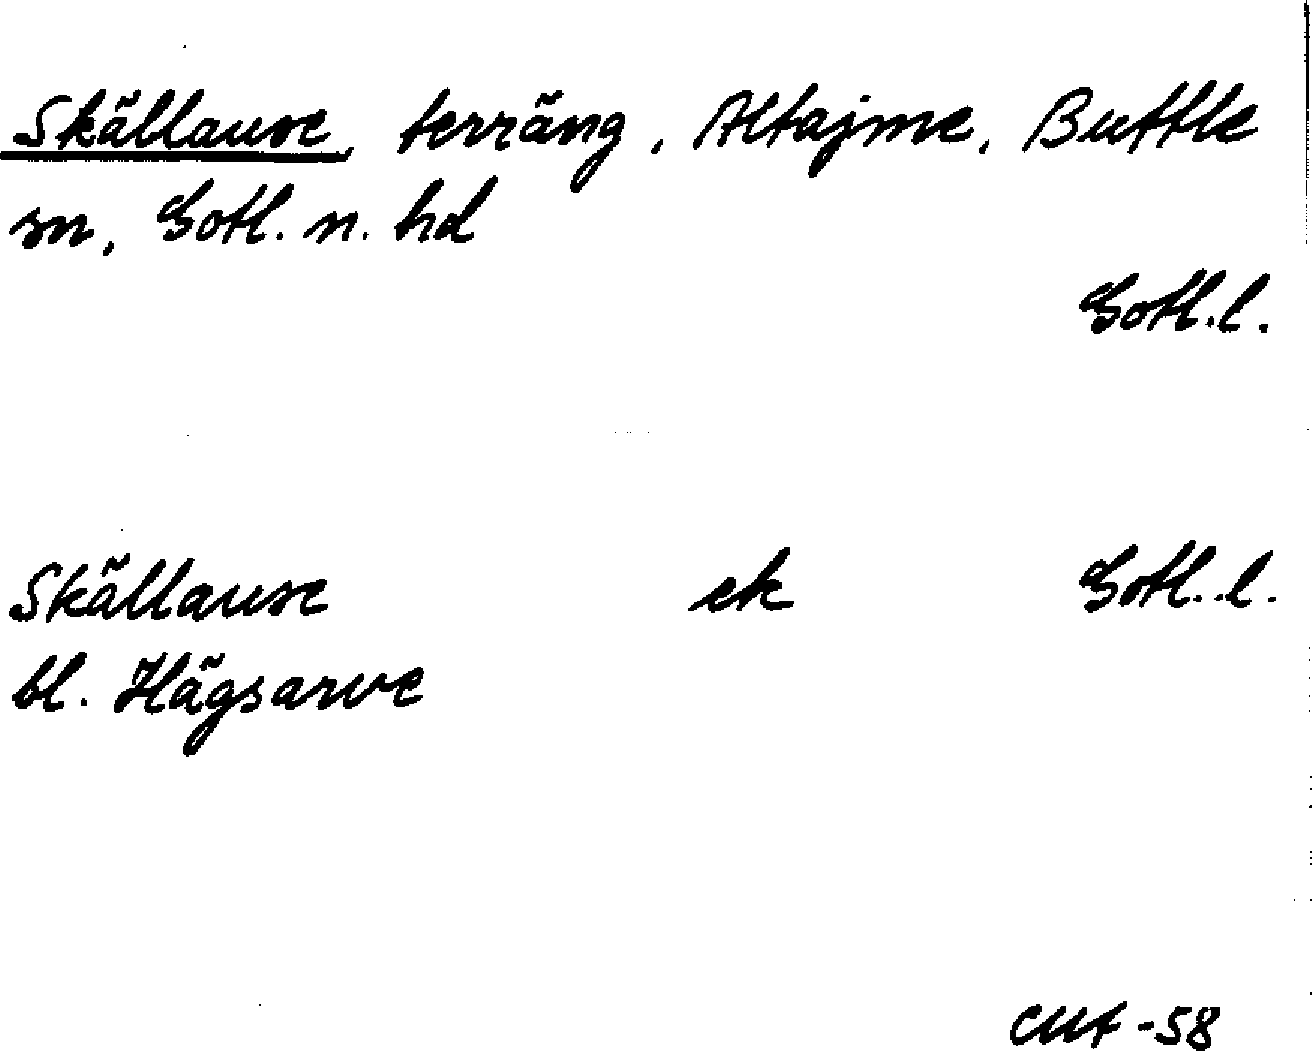 Skällause, terräng, Altajme, Buttle
sn, Gotl. n. hd
Gotl. l.
Skällause ek Gotl. l.
bl. Hägsarve
CMF -58